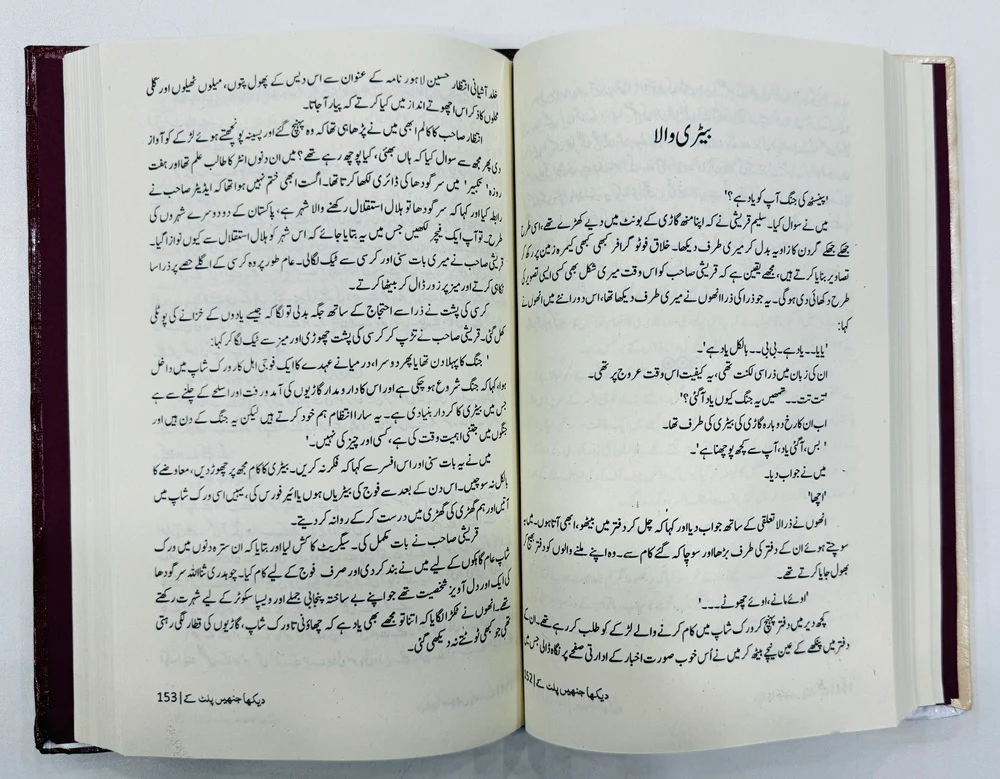 بیٹری والا
'پینسٹھ کی جنگ آپ کو یاد ہے؟'
میں نے سوال کیا۔ سلیم قریشی نے کہ اپنا منھ گاڑی کے بونٹ میں دیے کھڑے تھے، اسی طرح
جھکے جھکے گردن کا زاویہ بدل کر میری طرف دیکھا۔ خلاق فوٹو گرافر کبھی کبھی کیمرہ زمین پر رکھ کر
تصاویر بنایا کرتے ہیں، مجھے یقین ہے کہ قریشی صاحب کو اس وقت میری شکل بھی کسی ایسی تصویر کی
طرح دکھائی دی ہو گی۔ یہ جو ذرا کی ذرا انھوں نے میری طرف دیکھا تھا، اس دورانئے میں انھوں نے
کہا:
'یایا۔۔ یاد ہے۔ بی بی۔۔ بالکل یاد ہے'۔
ان کی زبان میں ذرا سی لکنت تھی، یہ کیفیت اس وقت عروج پر تھی۔
'تت تت۔۔ تمھیں یہ جنگ کیوں یاد آ گئی؟'
اب ان کا رخ دوبارہ گاڑی کی بیٹری کی طرف تھا۔
'بس، آگئی یاد، آپ سے کچھ پوچھنا ہے'۔
میں نے جواب دیا۔
'اچھا'
انھوں نے ذرا لاتعلقی کے ساتھ جواب دیا اور کہا کہ چل کر دفتر میں بیٹھو، ابھی آتا ہوں۔ میں یہ
سوچتے ہوئے ان کے دفتر کی طرف بڑھا اور سوچا کہ گئے کام سے۔ وہ اپنے ملنے والوں کو دفتر بھیج کر
بھول جایا کرتے تھے۔
'اوئے مانے، اوئے چھوٹے۔۔۔'
کچھ دیر میں دفتر پہنچ کر ورک شاپ میں کام کرنے والے لڑکے کو طلب کر رہے تھے۔ ان کے
دفتر میں پنکھے کے عین نیچے بیٹھ کر میں نے اُس خوب صورت اخبار کے ادارتی صفحے پر نگاہ ڈالی جس میں
دیکھا جنھیں پلٹ کے | 152
خلد آشیانی انتظار حسین لاہور نامہ کے عنوان سے اس دیس کے پھول پتوں، میلوں ٹھیلوں اور گلی
محلوں کا ذکر اس اچھوتے انداز میں کیا کرتے کہ پیار آ جاتا۔
انتظار صاحب کا کالم ابھی میں نے پڑھا ہی تھا کہ وہ پہنچ گئے اور پسینہ پونچھتے ہوئے لڑکے کو آواز
دی پھر مجھ سے سوال کیا کہ ہاں بھئی، کیا پوچھ رہے تھے؟ میں ان دنوں انٹر کا طالب علم تھا اور ہفت
روزہ 'تکبیر' میں سرگودھا کی ڈائری لکھا کرتا تھا۔ اگست ابھی ختم نہیں ہوا تھا کہ ایڈیٹر صاحب نے
رابطہ کیا اور کہا کہ سرگودھا تو ہلال استقلال رکھنے والا شہر ہے، پاکستان کے دو دوسرے شہروں کی
طرح۔ تو آپ ایک فیچر لکھیں جس میں یہ بتایا جائے کہ اس شہر کو ہلال استقلال سے کیوں نوازا گیا۔
قریشی صاحب نے میری بات سنی اور کرسی سے ٹیک لگا لی۔ عام طور پر وہ کرسی کے اگلے حصے پر ذرا سا
ٹکا ہی کرتے اور میز پر زور ڈال کر بیٹھا کرتے۔
کرسی کی پشت نے ذرا سے احتجاج کے ساتھ جگہ بدلی تو لگا کہ جیسے یادوں کے خزانے کی پوٹلی
کھل گئی۔ قریشی صاحب نے تڑپ کر کرسی کی پشت چھوڑی اور میز سے ٹیک لگا کر کہا:
'جنگ کا پہلا دن تھا یا پھر دوسرا، درمیانے عہدے کا ایک فوجی اہل کار ورک شاپ میں داخل
ہوا، کہا کہ جنگ شروع ہو چکی ہے اور اس کا دارومدار گاڑیوں کی آمدورفت اور اسلحے کے چلنے سے ہے
جس میں بیٹری کا کردار بنیادی ہے۔ یہ سارا انتظام ہم خود کرتے ہیں لیکن یہ جنگ کے دن ہیں اور
جنگوں میں جتنی اہمیت وقت کی ہے، کسی اور چیز کی نہیں۔'
میں نے یہ بات سنی اور اس افسر سے کہا کہ فکر نہ کریں۔ بیٹری کا کام مجھ پر چھوڑ دیں، معاوضے کا
بالکل نہ سوچیں۔ اس دن کے بعد سے فوج کی بیٹریاں ہوں یا ائیر فورس کی، یہیں اسی ورک شاپ میں
آئیں اور ہم گھڑی کی گھڑی میں درست کر کے روانہ کر دیتے۔
قریشی صاحب نے بات مکمل کی۔ سیگریٹ کا کش لیا اور بتایا کہ ان سترہ دنوں میں ورک
شاپ عام گاہکوں کے لیے میں نے بند کر دی اور صرف فوج کے لیے کام کیا۔ چوہدری ثنا اللہ سرگودھا
کی ایک اور دل آویز شخصیت تھے جو اپنے بے ساختہ پنجابی جملے اور ویسپا سکوٹر کے لیے شہرت رکھتے
تھے۔ انھوں نے ٹکڑا لگایا کہ اتنا تو مجھے بھی یاد ہے کہ چھاؤنی تا ورک شاپ، گاڑیوں کی قطار لگی رہتی
تھی جو کبھی ٹوٹتے نہ دیکھی گئی۔
دیکھا جنھیں پلٹ کے | 153